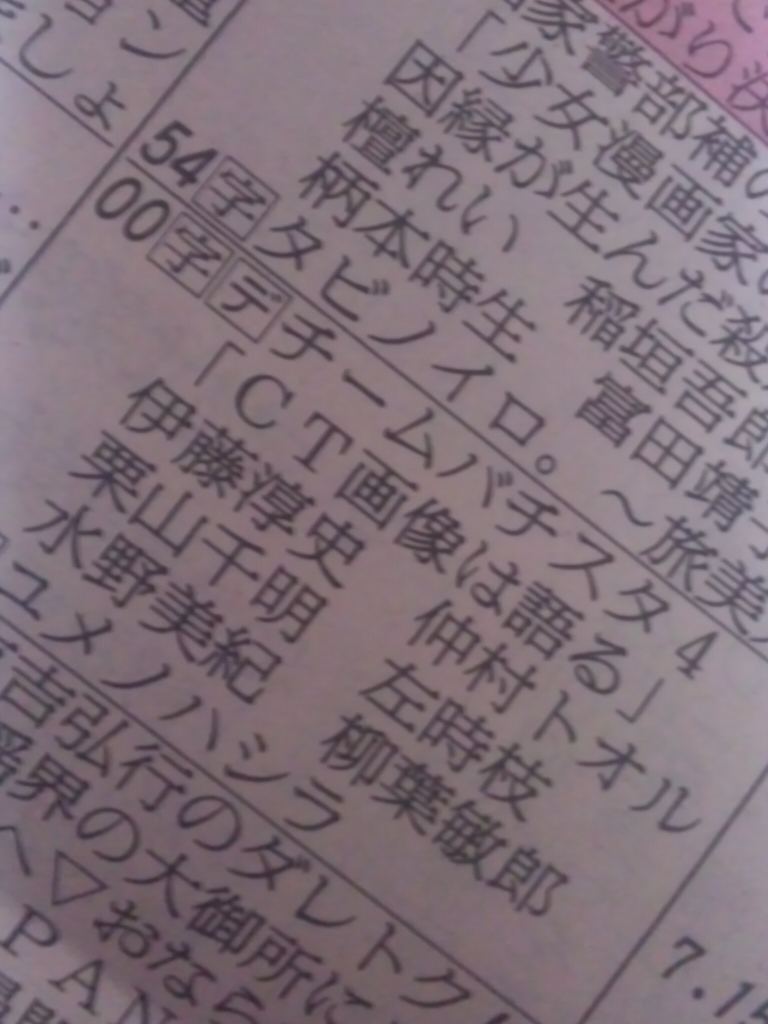 ョン
しょ
がり決
家警部補の
「少女漫画家の
因縁が生んだ殺
檀れい 稲垣吾郎
柄本時生 富田靖子
54字タビノイロ。～旅美
00字デチームバチスタ4
「CT画像は語る」
伊藤淳史 仲村トオル
栗山千明 左時枝
水野美紀 柳葉敏郎
ユメノハシラ
吉弘行のダレトク
界の大御所に
へ▽おなら
PAN
7.14